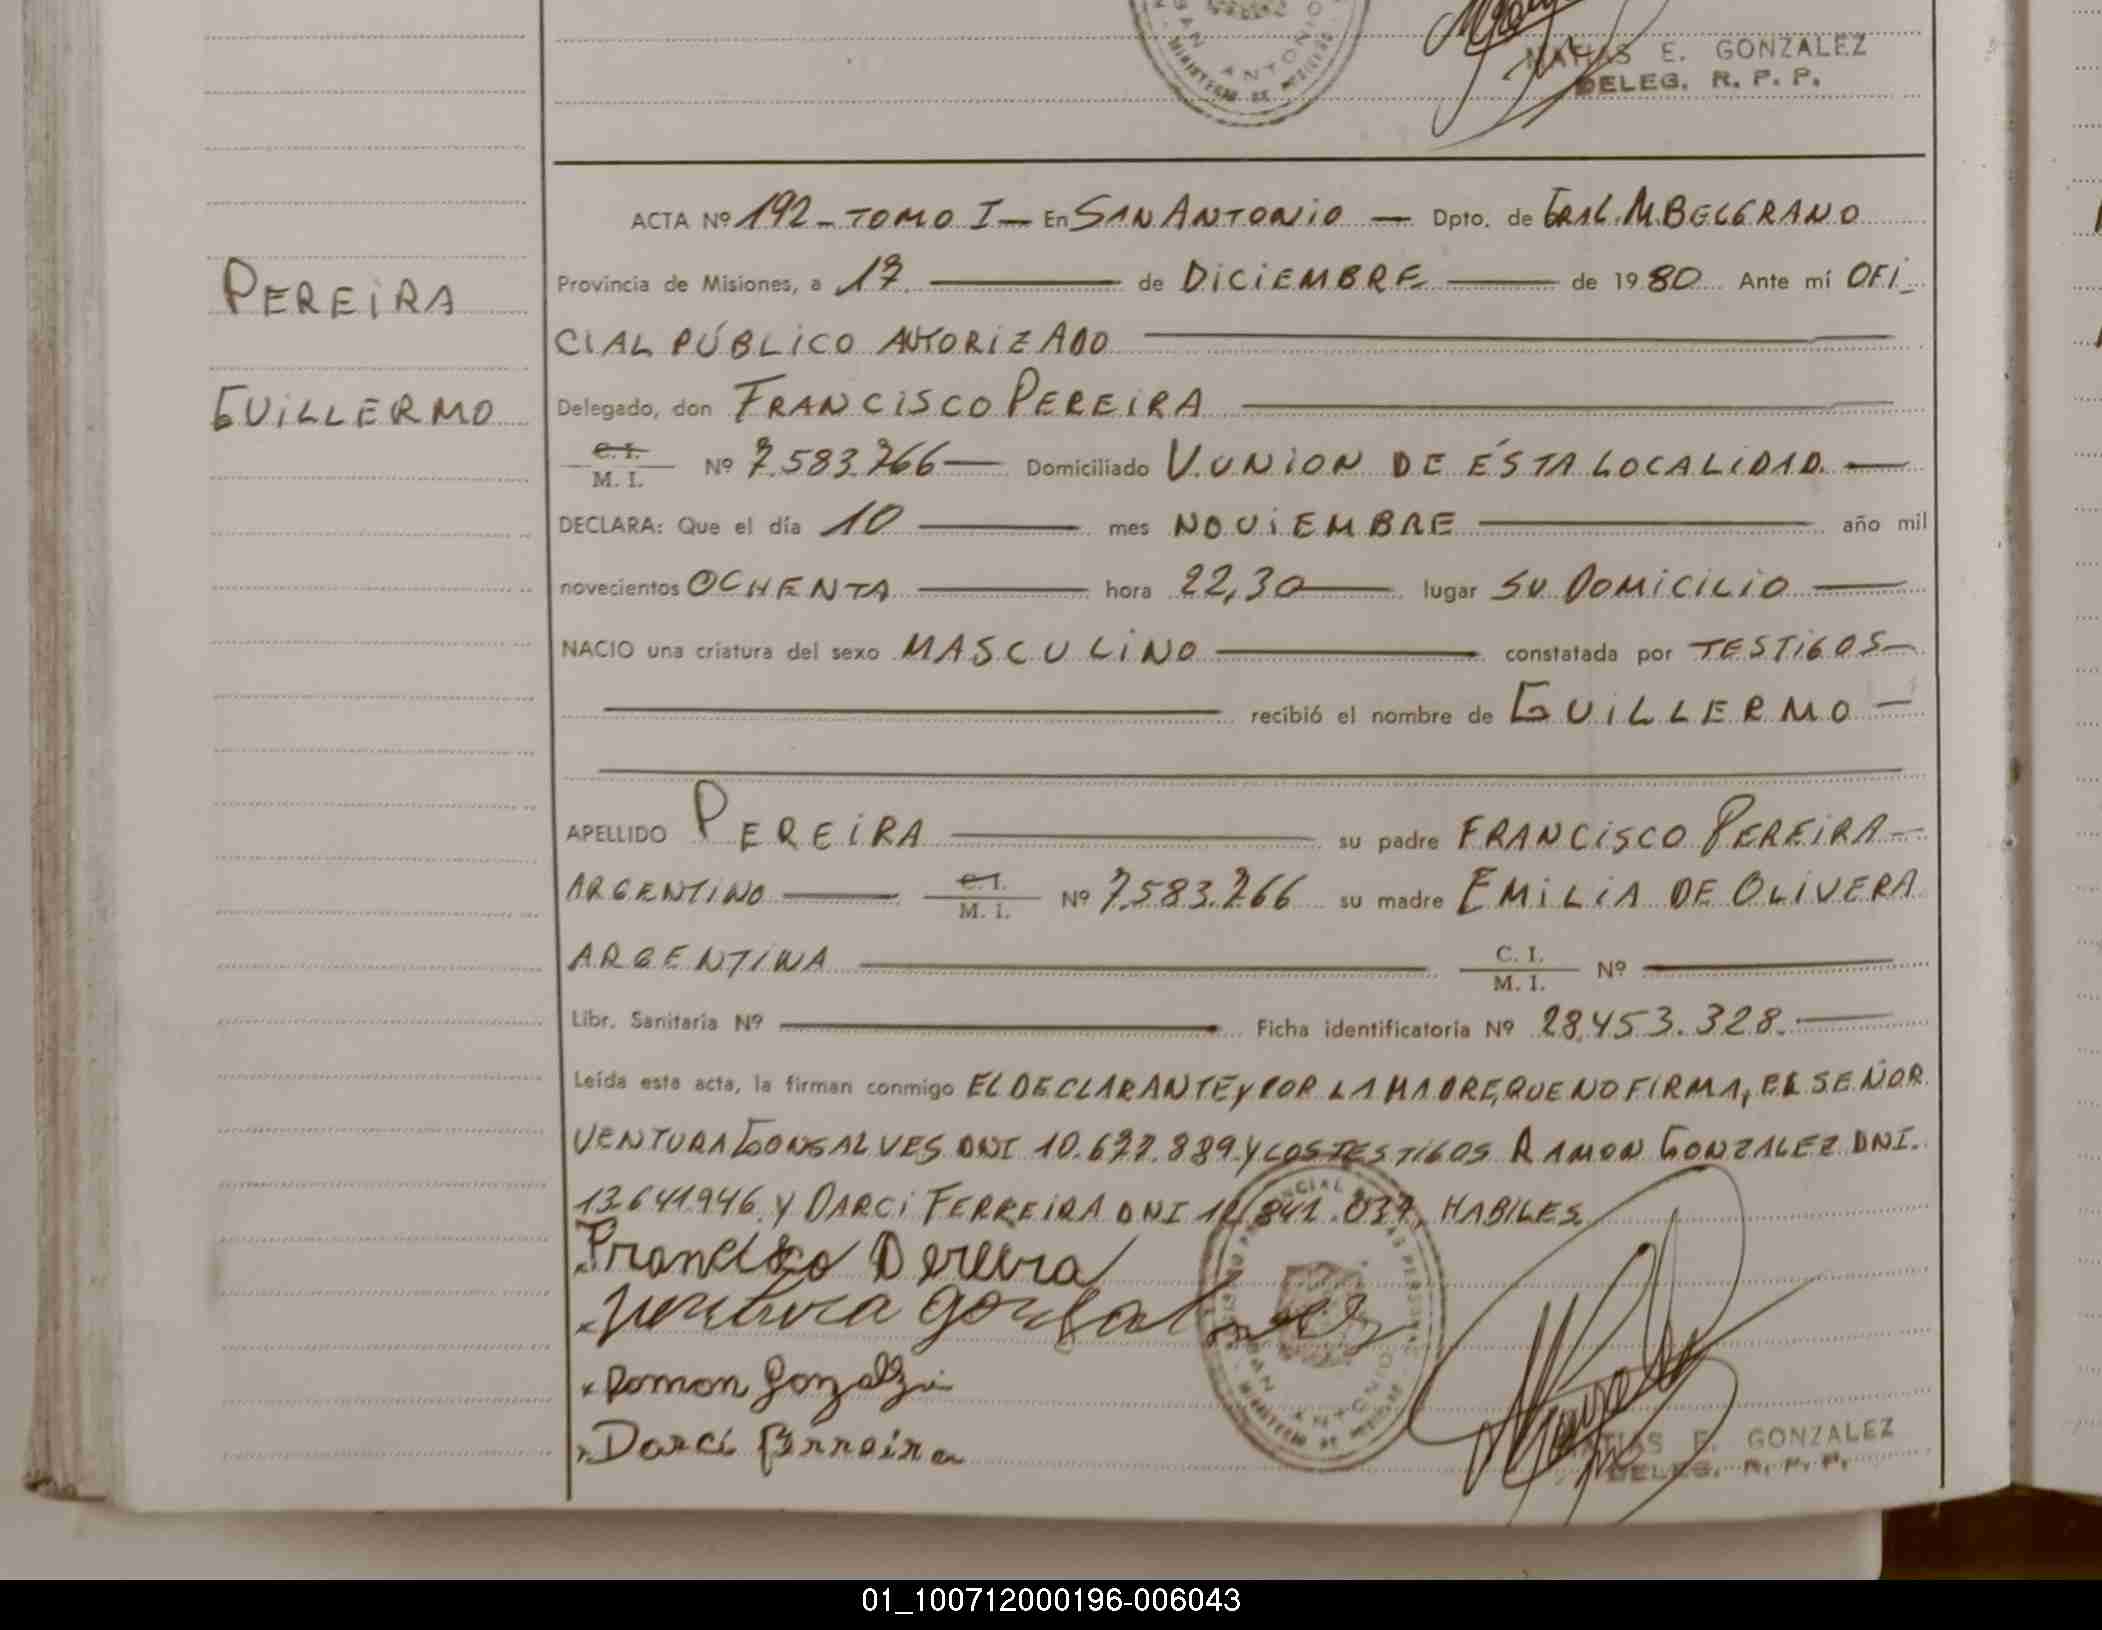 MATIAS E. GONZALEZ
DELEG. R. P. P.
ACTA Nº 192 - TOMO I — En SAN ANTONIO — Dpto. de GRAL. M. BELGRANO
Provincia de Misiones, a 17 — de DICIEMBRE — de 1980 Ante mí OFI-
CIAL PÚBLICO AUTORIZADO
PEREIRA
GUILLERMO
Delegado, don FRANCISCO PEREIRA
C. I. / M. I. Nº 7.583.766 — Domiciliado V. UNION DE ÉSTA LOCALIDAD. —
DECLARA: Que el día 10 — mes NOVIEMBRE — año mil
novecientos OCHENTA — hora 22,30 — lugar SU DOMICILIO —
NACIO una criatura del sexo MASCULINO — constatada por TESTIGOS —
— recibió el nombre de GUILLERMO —
APELLIDO PEREIRA — su padre FRANCISCO PEREIRA —
ARGENTINO — C. I. / M. I. Nº 7.583.766 su madre EMILIA DE OLIVERA
ARGENTINA — C. I. / M. I. Nº —
Libr. Sanitaria Nº — Ficha identificatoria Nº 28.453.328. —
Leída esta acta, la firman conmigo EL DECLARANTE y POR LA MADRE, QUE NO FIRMA, EL SEÑOR
VENTURA GONSALVES DNI 10.677.889. Y LOS TESTIGOS RAMON GONZALEZ DNI.
13.641.946. Y DARCI FERREIRA DNI HABILES
Francisco Pereira
Ventura Gonsalves
Ramon Gonzalez
Darci Ferreira
SAN ANTONIO
MATIAS E. GONZALEZ
DELEG. R. P. P.
01_100712000196-006043